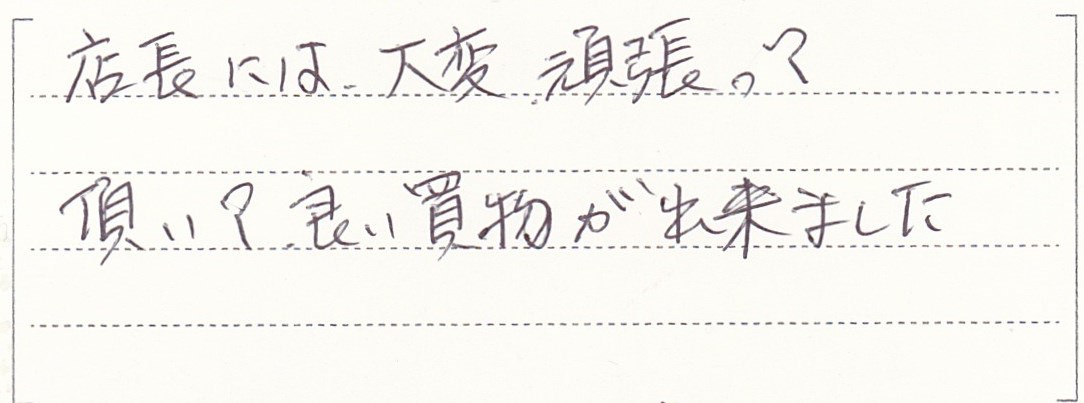 店長には大変頑張って
頂いて良い買物が出来ました